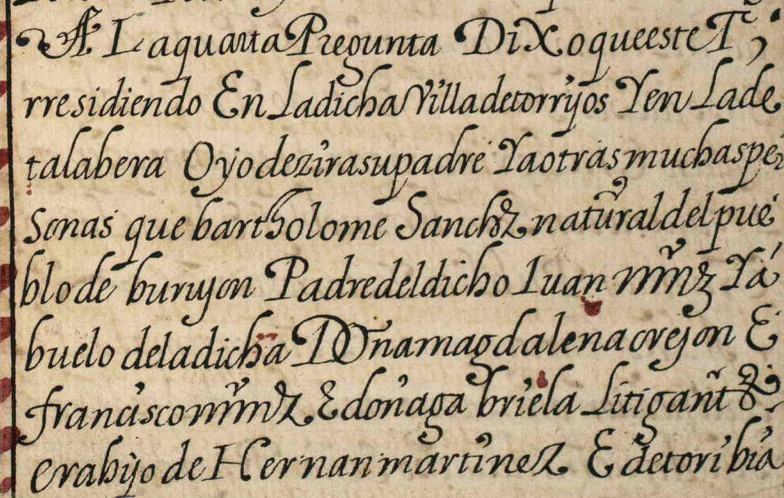 A La quarta Pregunta Dixo que este T̃,
rresidiendo En La dicha Villa de torrijos Y en La de
talabera Oyo dezir a su padre Y a otras muchas per
sonas que bartholome Sanchz natural del pue
blo de burujon Padre del dicho Iuan mrnz Y a
buelo de la dicha Doña magdalena orejon E
francisco mrnz E doña gabriela Litigant̃es
era hijo de Hernan martinez E de toribia